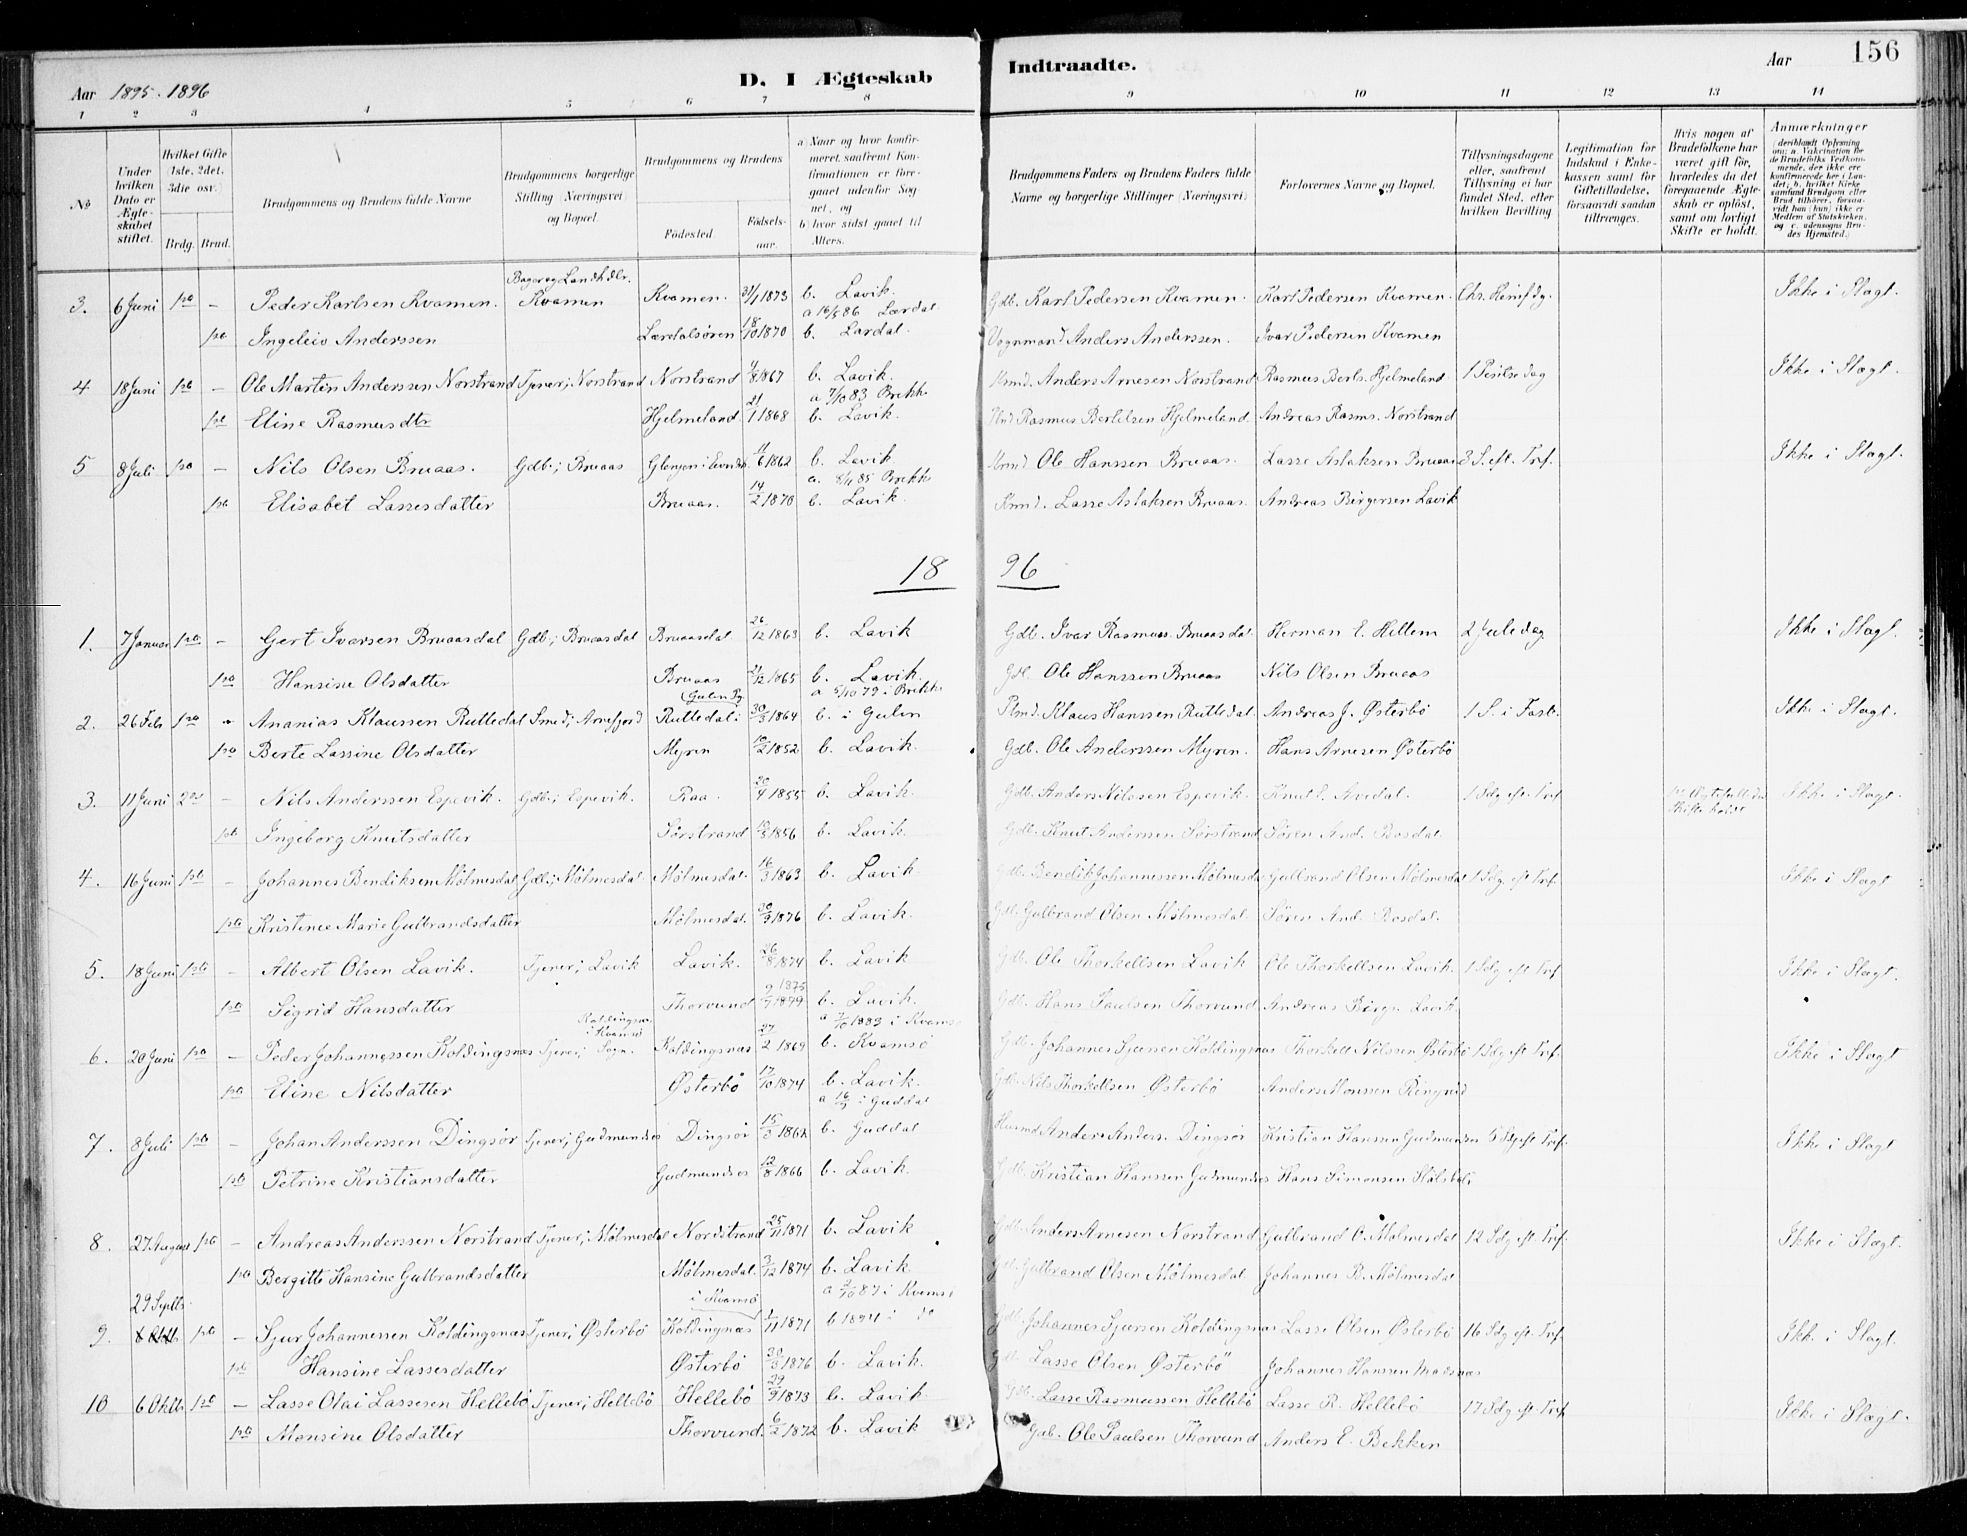 156
Aar 1895. 1896 D. I Ægteskab Indtraadte. Aar
1 2 3 4 5 6 7 8 9 10 11 12 13 14
№
Under hvilken Dato er Ægteskabet stiftet.
Hvilket Gifte (1ste, 2det, 3die osv.)
Brdg. Brud.
Brudgommens og Brudens fulde Navne
Brudgommens borgerlige Stilling (Næringsvei) og Bopæl.
Brudgommens og Brudens
Fødested. Fødselsaar.
a) Naar og hvor konfirmeret, saafremt Konfirmationen er foregaaet udenfor Sognet, og
b) hvor sidst gaaet til Alters.
Brudgommens Faders og Brudens Faders fulde Navne og borgerlige Stillinger (Næringsvei)
Forlovernes Navne og Bopæl.
Tillysningsdagene eller, saafremt Tillysning ei har fundet Sted, efter hvilken Bevilling
Legitimation for Indskud i Enkekassen samt for Giftetilladelse, forsaavidt saadan tiltrænges.
Hvis nogen af Brudefolkene har været gift før, hvorledes da det foregaaende Ægteskab er opløst, samt om lovligt Skifte er holdt.
Anmærkninger (deriblandt Oplysning om: a. Vakcination for de Brudefolks Vedkommende, der ikke ere konfirmerede her i Landet; b. hvilket Kirkesamfund Brudgom eller Brud tilhører, forsaavidt han (hun) ikke er Medlem af Statskirken, og c. udensogns Brudes Hjemsted.)
3. 6 Juni 1ste - Peder Karlsen Kvamen. Bager og Landhdlr. Kvamen Kvamen. 31/1 1873 b. Lavik. Gdb. Karl Pedersen Kvamen. Karl Pedersen Kvamen. Chr. Himfdg. Ikke i Slægt.
1ste Ingeleiv Anderssen Lærdalsøren 18/10 1870 a 16/5 86 Lærdal b. Lærdal. Vognmand Anders Anderssen. Ivar Pedersen Kvamen
4 18 Juni 1ste - Ole Martin Anderssen Norstrand Tjener; Norstrand Norstrand 4/8 1867 b. Lavik. Anders Arnesen Norstrand Rasmus Bertls. Hjelmeland 1 Pintsedag Ikke i Slægt.
1ste Eline Rasmusdtr Hjelmeland 21/1 1868 a 7/10 83 Brekke b. Lavik. Rasmus Bertelsen Hjelmeland. Andreas Rasms. Norstrand
5 8 Juli 1ste - Nils Olsen Bruaas. Gdb.; Bruaas 1862 b. Lavik Ole Hanssen Bruaas. Lasse Aslaksen Bruaas 3 S. eft. Tref. Ikke i Slægt.
1ste Elisabet Lassesdatter Bruaas. 14/2 1870 a. 85 Brekke b. Lavik. Lasse Aslaksen Bruaas. Andreas Børgersen Lavik
18 96
1. 7 Januar 1ste - Gert Ivarsen Bruaasdal Gdb.; Bruaasdal Bruaasdal 26/12 1863 b. Lavik Gdb. Ivar Rasmuss. Bruaasdal. Herman E. Hillem 2 Juledag Ikke i Slægt.
1ste Hansine Olsdatter Bruaas 21/12 1865 b. Lavik. Gdb. Ole Hanssen Bruaas Nils Olsen Bruaas
2. 26 Febr 1ste - Ananias Klaussen Rutledal Smed; Arnefjord Rutledal: (Gulen Pg. 30/3 1864 a 5/10 79 i Brekke b. i Gulen Plmd. Klaus Hanssen Rutledal. Andreas J. Østerbø 1 S. i Fast. Ikke i Slægt.
1ste Berte Lassine Olsdatter Myren 10/2 1852 b. Lavik. Gdb. Ole Anderssen Myren. Hans Arnesen Østerbø
3. 11 Juni 2det - Nils Anderssen Espevik. Gdb.; Espevik. Raa. 20/4 1855 b. Lavik. Gdb. Anders Nilssen Espevik. Knut E. Avedal. 1 Sdg eft. Tref Skifte holdt Ikke i Slægt.
1ste Ingeborg Knutsdatter Sørstrand 1856 b. Lavik Gdb. Knut Andersen Sørstrand Søren And. Bosdal.
4. 16 Juni 1ste - Johannes Bendiksen Mølmesdal Gdb.; Mølmesdal Mølmesdal. 16/3 1863 b. Lavik Gdb. Bendik Johannessen Mølmesdal Gulbrand Olsen Mølmesdal 1 Sdg. eft Tref. Ikke i Slægt
1ste Kristence Marie Gulbrandsdatter Mølmesdal. 30/9 1876 b. Lavik. Gdb. Gulbrand Olsen Mølmesdal. Søren And. Bosdal.
5. 18 Juni 1ste - Albert Olsen Lavik. Tjener; Lavik Lavik. 26/8 1874 b. Lavik Gdb. Ole Thorkellsen Lavik Ole Thorkellsen Lavik. 1 Sdg eft Tref Ikke i Slægt.
1ste Sigrid Hansdatter Thorvund 1875 b. Lavik. Gdb. Hans Paulsen Thorvund Andreas Børgs. Lavik.
6. 20 Juni 1ste - Peder Johannessen Koldingsnæs Tjener; Koldingsnæs i Kvamsø Sogn. Koldingsnæs 27/2 1869 a 7/10 1883 i Kvamsø b. Kvamsø Gdb. Johannes Sjursen Koldingsnæs Thorkell Nilssen Østerbø 1 Sdg eft Tref. Ikke i Slægt
1ste Eline Nilsdatter Østerbø 17/10 1874 b. Lavik. Gdb. Nils Thorkellsen Østerbø Anders Monssen Ringereid
7. 8 Juli 1ste - Johan Anderssen Dingsør Tjener; Gudmundsøs Dingsør 15/3 1862 a i Guddal b. Guddal Husmd Anders Anders. Dingsør Kristian Hansen Gudmundsøs 6 Sdg eft Tref. Ikke i Slægt
1ste Petrine Kristiansdatter Gudmundsøs 12/8 1866 b. Lavik. Gdb. Kristian Hanssen Gudmundsøs Hans Simonsen
8. 27 August 1ste - Andreas Anderssen Norstrand Tjener; Mølmesdal Nordstrand 25/11 1871 b. Lavik Gdb. Anders Arnesen Norstrand Gulbrand O. Mølmesdal 12 Sdg eft. Tref. Ikke i Slægt.
1ste Bergitte Hansine Gulbrandsdatter Mølmesdal. 3/12 1874 b. Lavik. Gdb. Gulbrand Olsen Mølmesdal. Johannes B. Mølmesdal
9. 29 Septbr. 1ste - Sjur Johannessen Koldingsnæs Tjener; Østerbø Koldingsnæs i Kvamsø 1/11 1871 a 2/10 87 i Kvamsø b 1894 i do Gdb. Johannes Sjursen Koldingsnæs Lasse Olsen Østerbø 16 Sdg eft. Tref. Ikke i Slægt.
1ste Hansine Lassesdatter Østerbø 30/3 1876 b. Lavik. Gdb. Lasse Olsen Østerbø Johannes Hansen
10 6 Oktb. 1ste - Lasse Olai Lassesen Hellebø Tjener; Hellebø Hellebø 29/9 1873 b. Lavik. Gdb. Lasse Rasmussen Hellebø Lasse R. Hellebø 17 Sdg. eft. Tref Ikke i Slægt.
1ste Monsine Olsdatter Thorvund. 6/2 1872 b. Lavik Gdb. Ole Paulsen Thorvund Anders E. Bekken